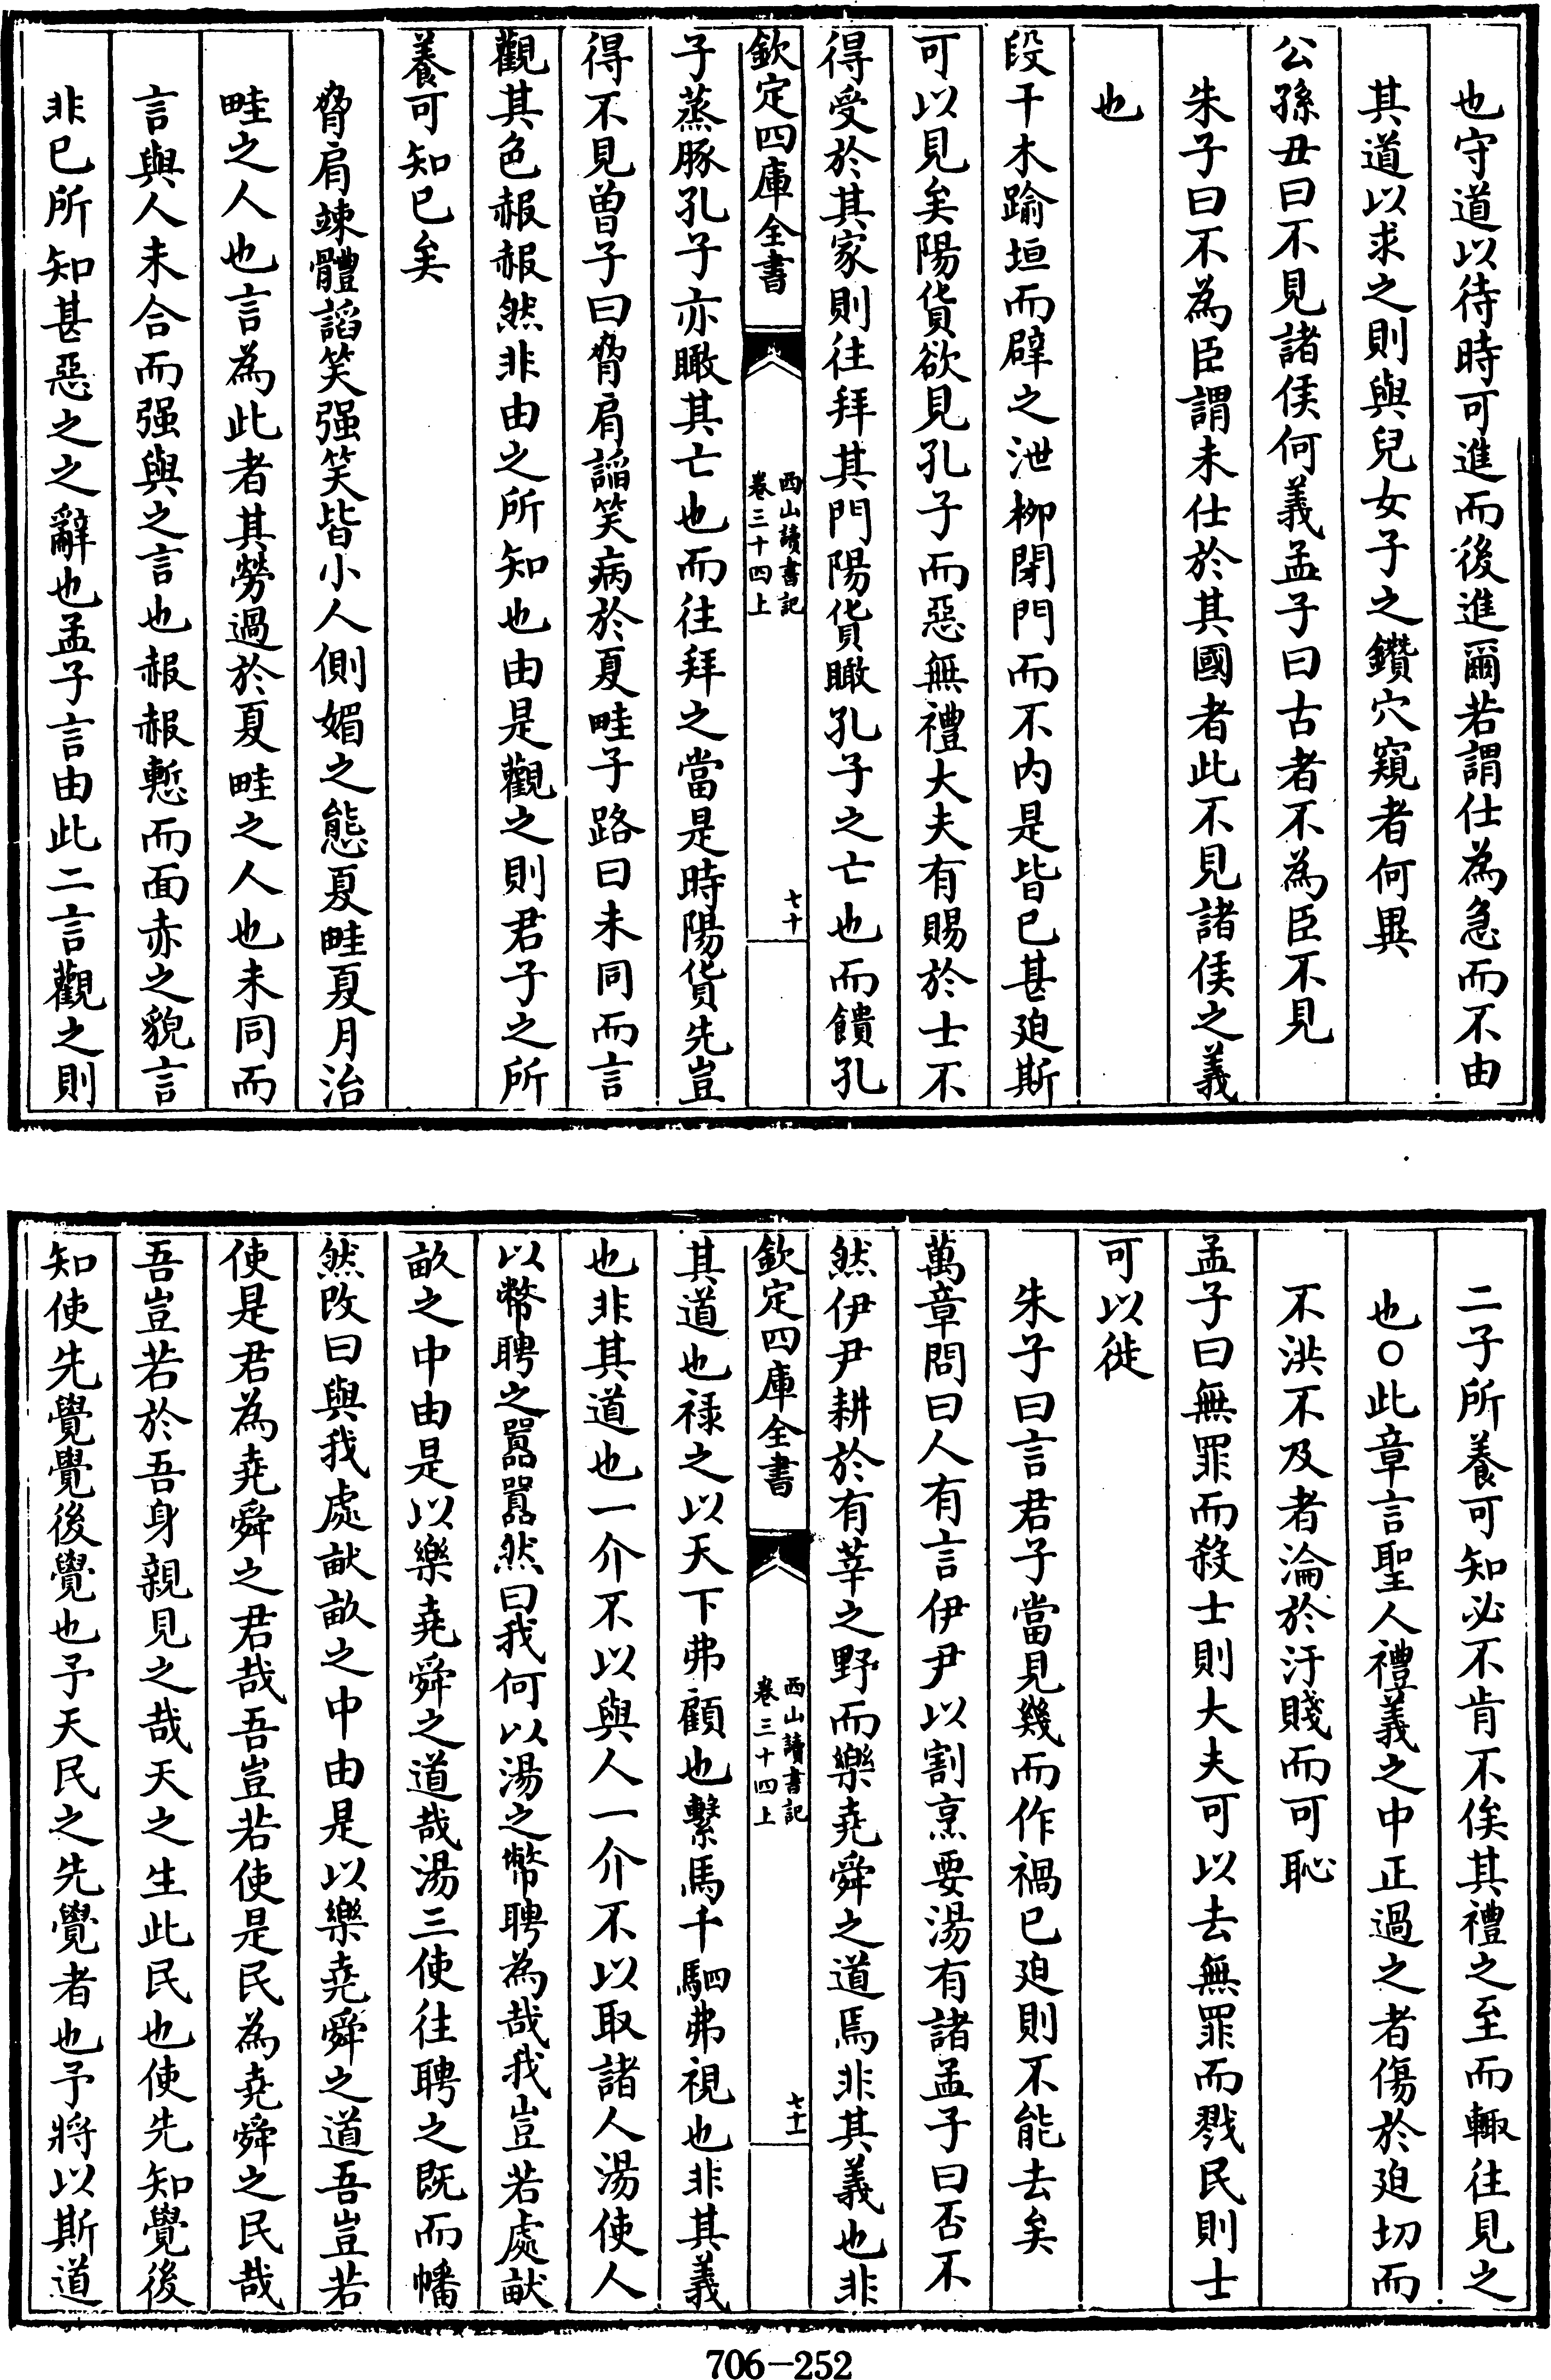 也守道以待時可進而後進爾若謂仕為急而不由
其道以求之則與兒女子之鑽穴窺者何異
公孫丑曰不見諸侯何義孟子曰古者不為臣不見
朱子曰不為臣謂未仕於其國者此不見諸侯之義
也
段干木踰垣而辟之泄柳閉門而不内是皆已甚廹斯
可以見矣陽貨欲見孔子而惡無禮大夫有賜於士不
得受於其家則往拜其門陽貨瞰孔子之亡也而饋孔
欽定四庫全書
西山讀書記
卷三十四上
七十
子蒸豚孔子亦瞰其亡也而往拜之當是時陽貨先豈
得不見曾子曰脅肩謟笑病於夏畦子路曰未同而言
觀其色赧赧然非由之所知也由是觀之則君子之所
養可知已矣
脅肩竦體謟笑强笑皆小人側媚之態夏畦夏月治
畦之人也言為此者其勞過於夏畦之人也未同而
言與人未合而强與之言也赧赧慙而面赤之貌言
非已所知甚惡之之辭也孟子言由此二言觀之則
二子所養可知必不肯不俟其禮之至而輙往見之
也○此章言聖人禮義之中正過之者傷於廹切而
不洪不及者淪於汙賤而可恥
孟子曰無罪而殺士則大夫可以去無罪而戮民則士
可以徙
朱子曰言君子當見幾而作禍已廹則不能去矣
萬章問曰人有言伊尹以割烹要湯有諸孟子曰否不
然伊尹耕於有莘之野而樂堯舜之道焉非其義也非
欽定四庫全書
西山讀書記
卷三十四上
七十一
其道也禄之以天下弗顧也繫馬千駟弗視也非其義
也非其道也一介不以與人一介不以取諸人湯使人
以幣聘之囂囂然曰我何以湯之幣聘為哉我豈若處畎
畝之中由是以樂堯舜之道哉湯三使往聘之既而幡
然改曰與我處畎畝之中由是以樂堯舜之道吾豈若
使是君為堯舜之君哉吾豈若使是民為堯舜之民哉
吾豈若於吾身親見之哉天之生此民也使先知覺後
知使先覺覺後覺也予天民之先覺者也予將以斯道
706-252